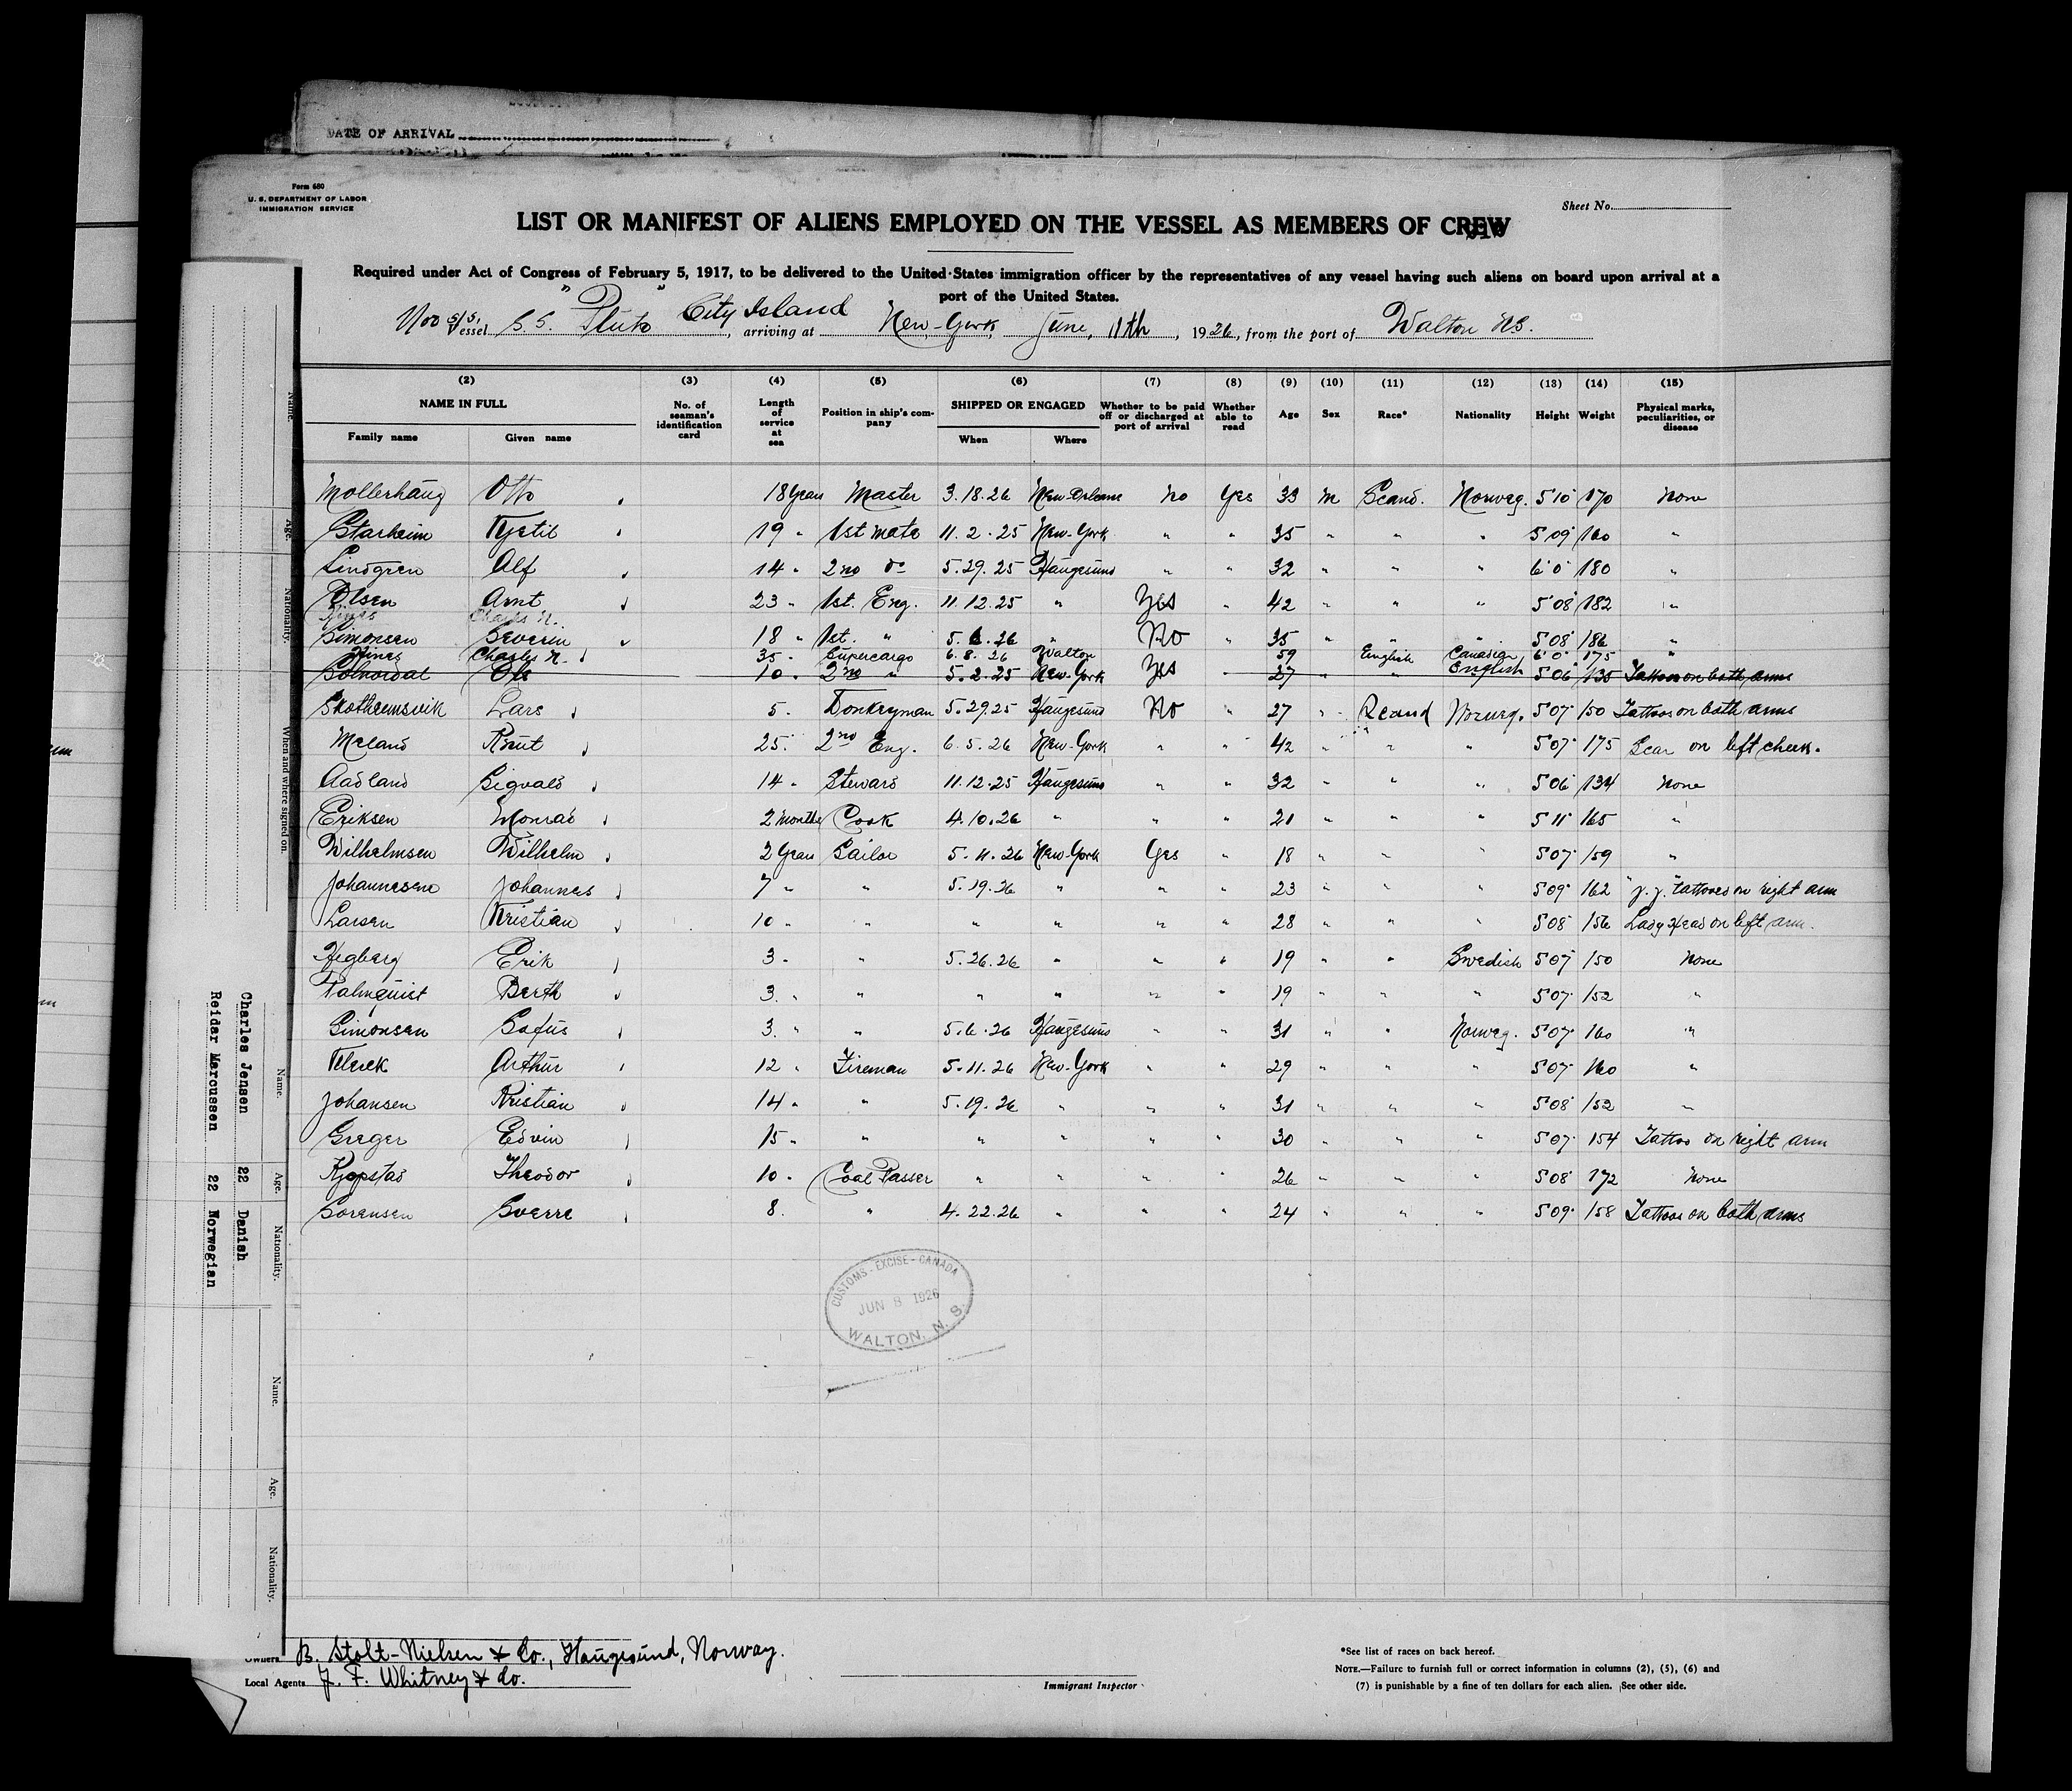 DATE OF ARRIVAL
Form 680
U. S. DEPARTMENT OF LABOR
IMMIGRATION SERVICE
Sheet No.
LIST OR MANIFEST OF ALIENS EMPLOYED ON THE VESSEL AS MEMBERS OF CREW
Required under Act of Congress of February 5, 1917, to be delivered to the United States immigration officer by the representatives of any vessel having such aliens on board upon arrival at a
port of the United States.
Nor S/S. Vessel S.S. "Pluto" City Island, arriving at New-York, June, 11th, 1926, from the port of Walton N.S.
(2) (3) (4) (5) (6) (7) (8) (9) (10) (11) (12) (13) (14) (15)
NAME IN FULL No. of seaman's identification card Length of service at sea Position in ship's company SHIPPED OR ENGAGED Whether to be paid off or discharged at port of arrival Whether able to read Age Sex Race* Nationality Height Weight Physical marks, peculiarities, or disease
Family name Given name When Where
Mollerhaug Otto 18 Years Master 3.18.26 New-Orleans No Yes 33 M Scand. Norweg. 5'10 170 None
Starheim Kjetil 19 " 1st mate 11.2.25 New-York " " 35 " " " 5'09 160 "
Lindgren Alf 14 " 2nd do 5.29.25 Haugesund " " 32 " " " 6'0 180 "
Olsen Arnt 23 " 1st. Eng. 11.12.25 " Yes " 42 " " " 5'08 182 "
Hines Charles N.
Simonsen Severin 18 " 1st. " 5.6.26 " No " 35 " " " 5'08 186 "
Hines Charles N. 35 " Supercargo 6.8.26 Walton 59 English Canadian 6'0" 175 "
Ole 10 " 2nd " 5.2.25 New-York Yes " 27 " " English 5'06 135 Tattoos on both arms
Skotheimsvik Lars 5 " Donkeyman 5.29.25 Haugesund No " 27 " Scand Norweg. 5'07 150 Tattoos on both arms
Meland Knut 25 " 2nd Eng. 6.5.26 New-York " " 42 " " " 5'07 175 Scar on left cheek.
Aadland Sigvald 14 " Steward 11.12.25 Haugesund " " 32 " " " 5'06 134 None
Eriksen Monrad 2 months Cook 4.10.26 " " " 21 " " " 5'11 165 "
Wilhelmsen Wilhelm 2 Years Sailor 5.11.26 New-York Yes " 18 " " " 5'07 159 "
Johannesene Johannes 7 " " 5.19.26 " " " 23 " " " 5'09 162 "J.J." tattooed on right arm
Larsen Kristian 10 " " " " " " 28 " " " 5'08 156 Lady Head on left arm.
Hegberg Erik 3 " " 5.26.26 " " " 19 " " Swedish 5'07 150 None
Palmquist Berth 3 " " " " " " 19 " " " 5'07 152 "
Simonsen Sofus 3 " " 5.6.26 Haugesund " " 31 " " Norweg. 5'07 160 "
Arthur 12 " Fireman 5.11.26 New-York " " 29 " " " 5'07 160 "
Johansen Kristian 14 " " 5.19.26 " " " 31 " " " 5'08 152 "
Greger Edvin 15 " " " " " " 30 " " " 5'07 154 Tattoo on right arm
Kjopstad Theodor 10 " Coal Passer " " " " 26 " " " 5'08 172 None
Sorensen Sverre 8 " " 4.22.26 " " " 24 " " " 5'09 158 Tattoos on both arms
CUSTOMS-EXCISE-CANADA
JUN 8 1926
WALTON, N.S.
Name. Age. Nationality. When and where signed on.
Name. Age. Nationality.
Charles Jensen 22 Danish
Reidar Marcussen 22 Norwegian
Name. Age. Nationality.
Owners B. Stolt-Nielsen & Co., Haugesund, Norway.
Local Agents J. F. Whitney & Co.
Immigrant Inspector
*See list of races on back hereof.
NOTE.—Failure to furnish full or correct information in columns (2), (5), (6) and
(7) is punishable by a fine of ten dollars for each alien. See other side.